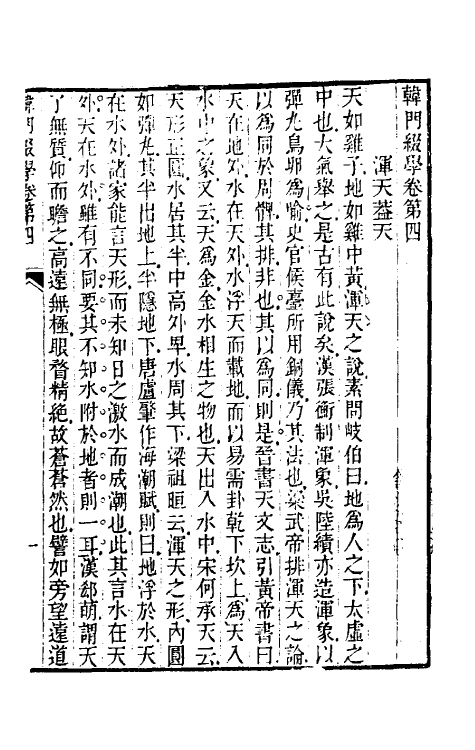 韓門綴學卷第四
渾天葢天
天如雞子地如雞中黃渾天之說素問岐伯曰地爲人之下太虛之
中也大氣舉之是古有此說矣漢張衡制渾象吳陸績亦造渾象以
彈丸鳥卵爲喻史官候臺所用銅儀乃其法也梁武帝排渾天之論
以爲同於周髀其排非也其以爲同則是晉書天文志引黃帝書曰
天在地外水在天外水浮天而載地而以易需卦乾下坎上爲天入
水中之象又云天爲金金水相生之物也天出入水中宋何承天云
天形正圓水居其半中高外卑水周其下梁祖暅云渾天之形內圓
如彈丸其半出地上半隱地下唐盧肇作海潮賦則曰地浮於水天
在水外諸家能言天形而未知日之激水而成潮也此其言水在天
外天在水外雖有不同要其不知水附於地者則一耳漢郄萌謂天
了無質仰而瞻之高遠無極眼瞀精絶故蒼蒼然也譬如旁望遠道
韓門綴學卷第四
一